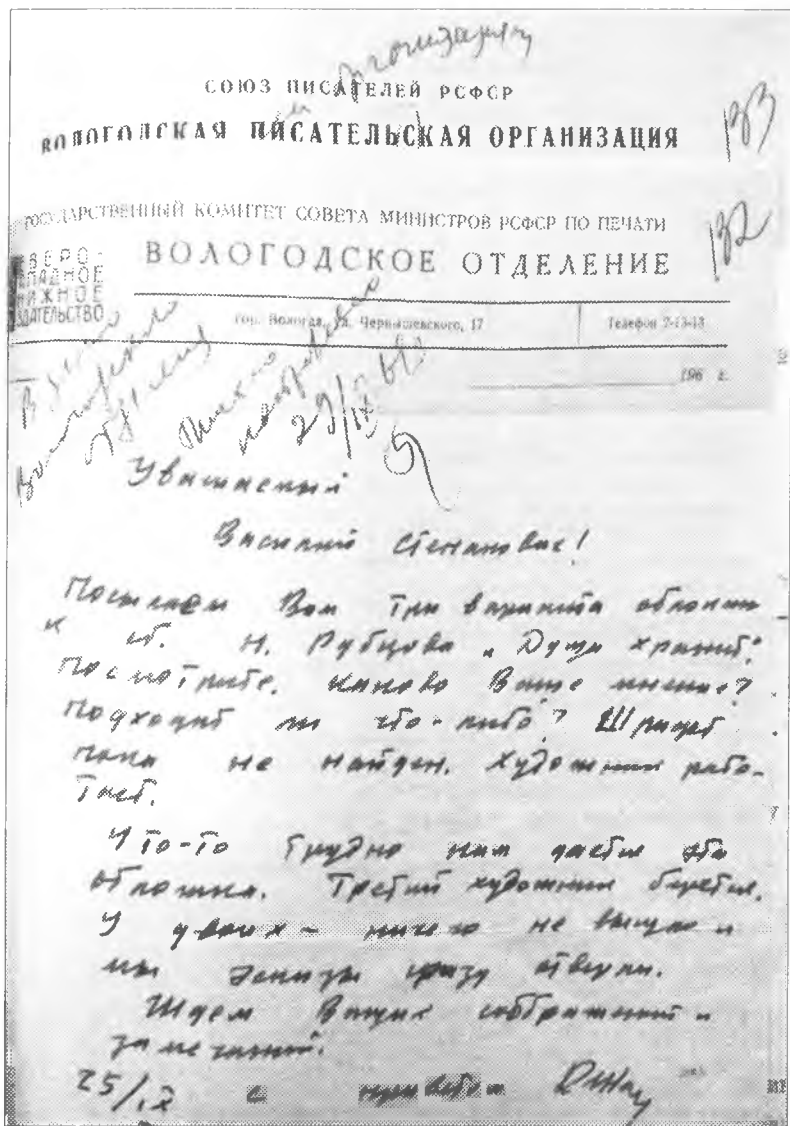 организацию
СОЮЗ ПИСАТЕЛЕЙ РСФСР
ВОЛОГОДСКАЯ ПИСАТЕЛЬСКАЯ ОРГАНИЗАЦИЯ
133
ГОСУДАРСТВЕННЫЙ КОМИТЕТ СОВЕТА МИНИСТРОВ РСФСР ПО ПЕЧАТИ
132
СЕВЕРО-
ЗАПАДНОЕ
КНИЖНОЕ
ИЗДАТЕЛЬСТВО
ВОЛОГОДСКОЕ ОТДЕЛЕНИЕ
гор. Вологда, ул. Чернышевского, 17
Телефон 7-13-13
196 г.
29/IX
Уважаемый
Василий Степанович!
Посылаем Вам три варианта обложки
к сб. Н. Рубцова „Душа хранит".
Посмотрите. Каково Ваше мнение?
Подходит ли что-либо? Шрифт
пока не найден. Художник рабо-
тает.
Что-то трудно нам дается эта
обложка. Третий художник берется.
У двоих - ничего не вышло и
мы эскизы сразу отвергли.
Ждем Ваших соображений и
замечаний.
25/IX с приветом